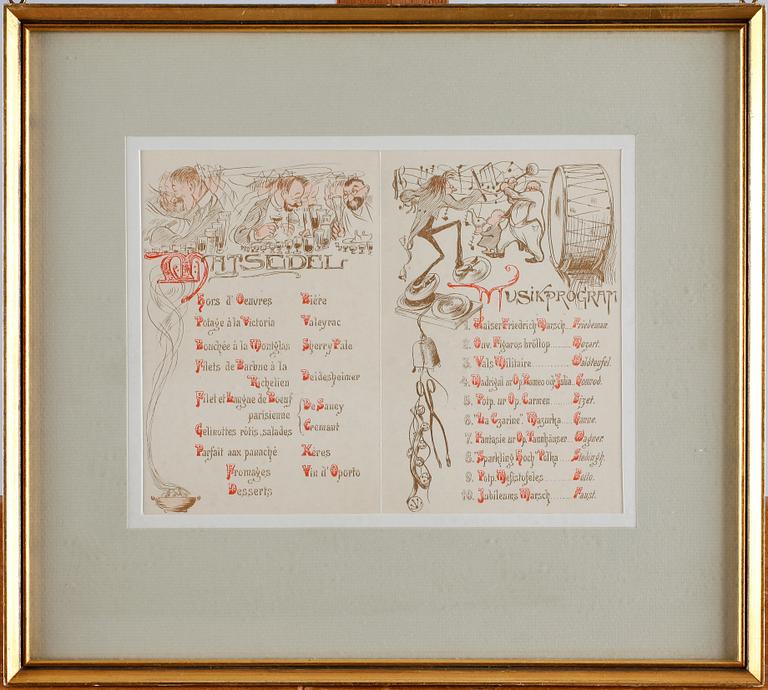 MATSEDEL
Hors d' Oeuvres Bière
Potage à la Victoria Valeyrac
Bouchée à la Montglas Sherry Pale
Filets de Barbue à la
Richelieu Deidesheimer
Filet et Langue de Boeuf
parisienne De Saucy
Gelinottes rôtis, salades Cremant
Parfait aux panaché Xéres
Fromages Vin d'Oporto
Desserts
MUSIKPROGRAM
1. Kaiser Friedrich Marsch... Friedeman.
2. Ouv. Figaros bröllop ........ Mozart.
3. Vals Militaire ............ Waldteufel.
4. Madrigal ur Op. Romeo och Julia. Gounod.
5. Potp. ur Op. Carmen........ Bizet.
6. "La Czarine" Mazurka...... Ganne.
7. Fantasie ur Op. Tannhäuser.. Wagner.
8. "Sparkling Hoch" Polka....
9. Potp. Mefistofeles ........ Boito.
10. Jubileums Marsch........ Faust.